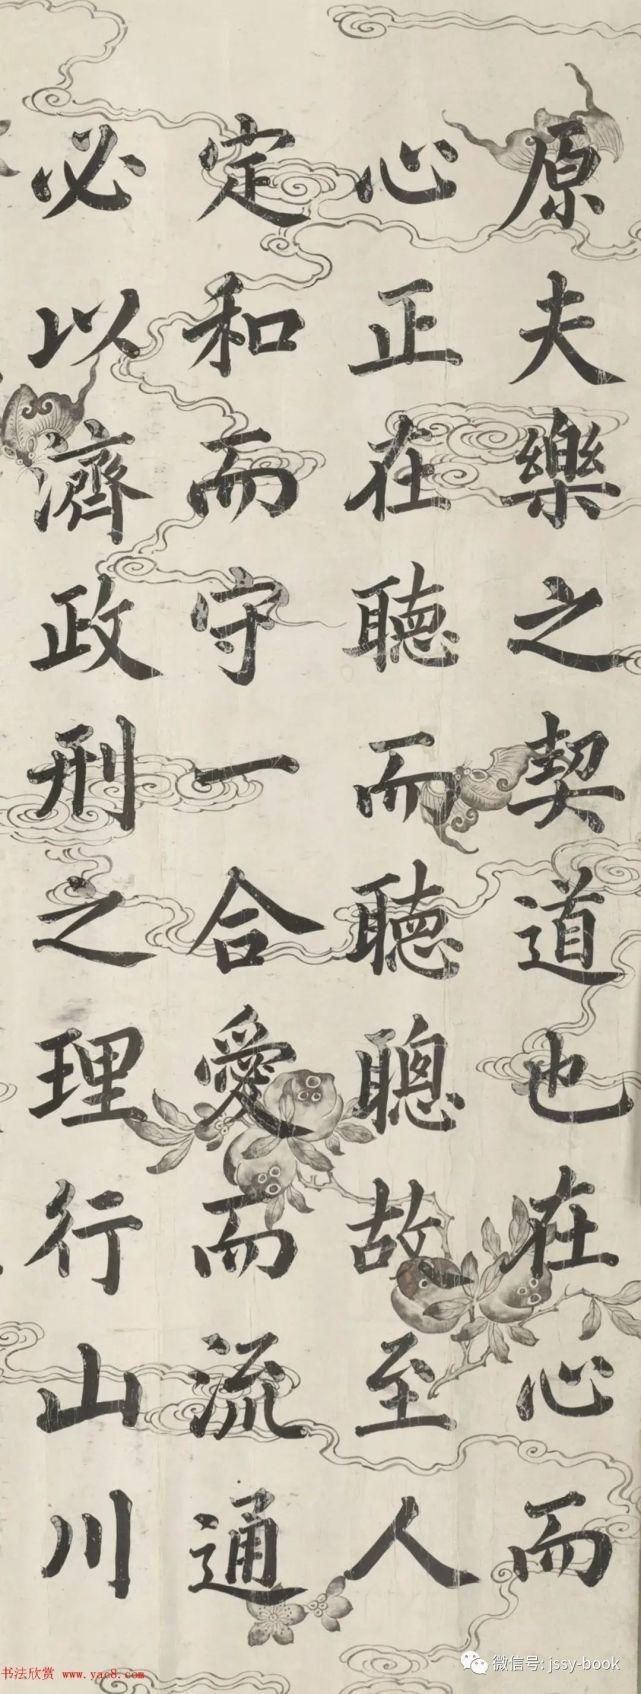 原夫樂之契道也在心而
心正在聽而聽聰故至人
定和而守一合愛而流通
必以濟政刑之理行山川
书法欣赏 www.yac8.com
微信号: jssy-book